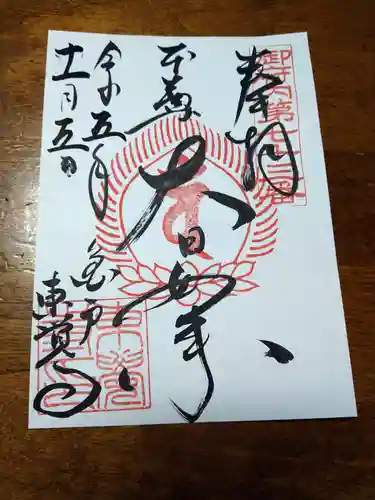 御府内第七十三番
奉拝
本尊
大日如来
亀戸
令和五年
十一月五日
東覚寺